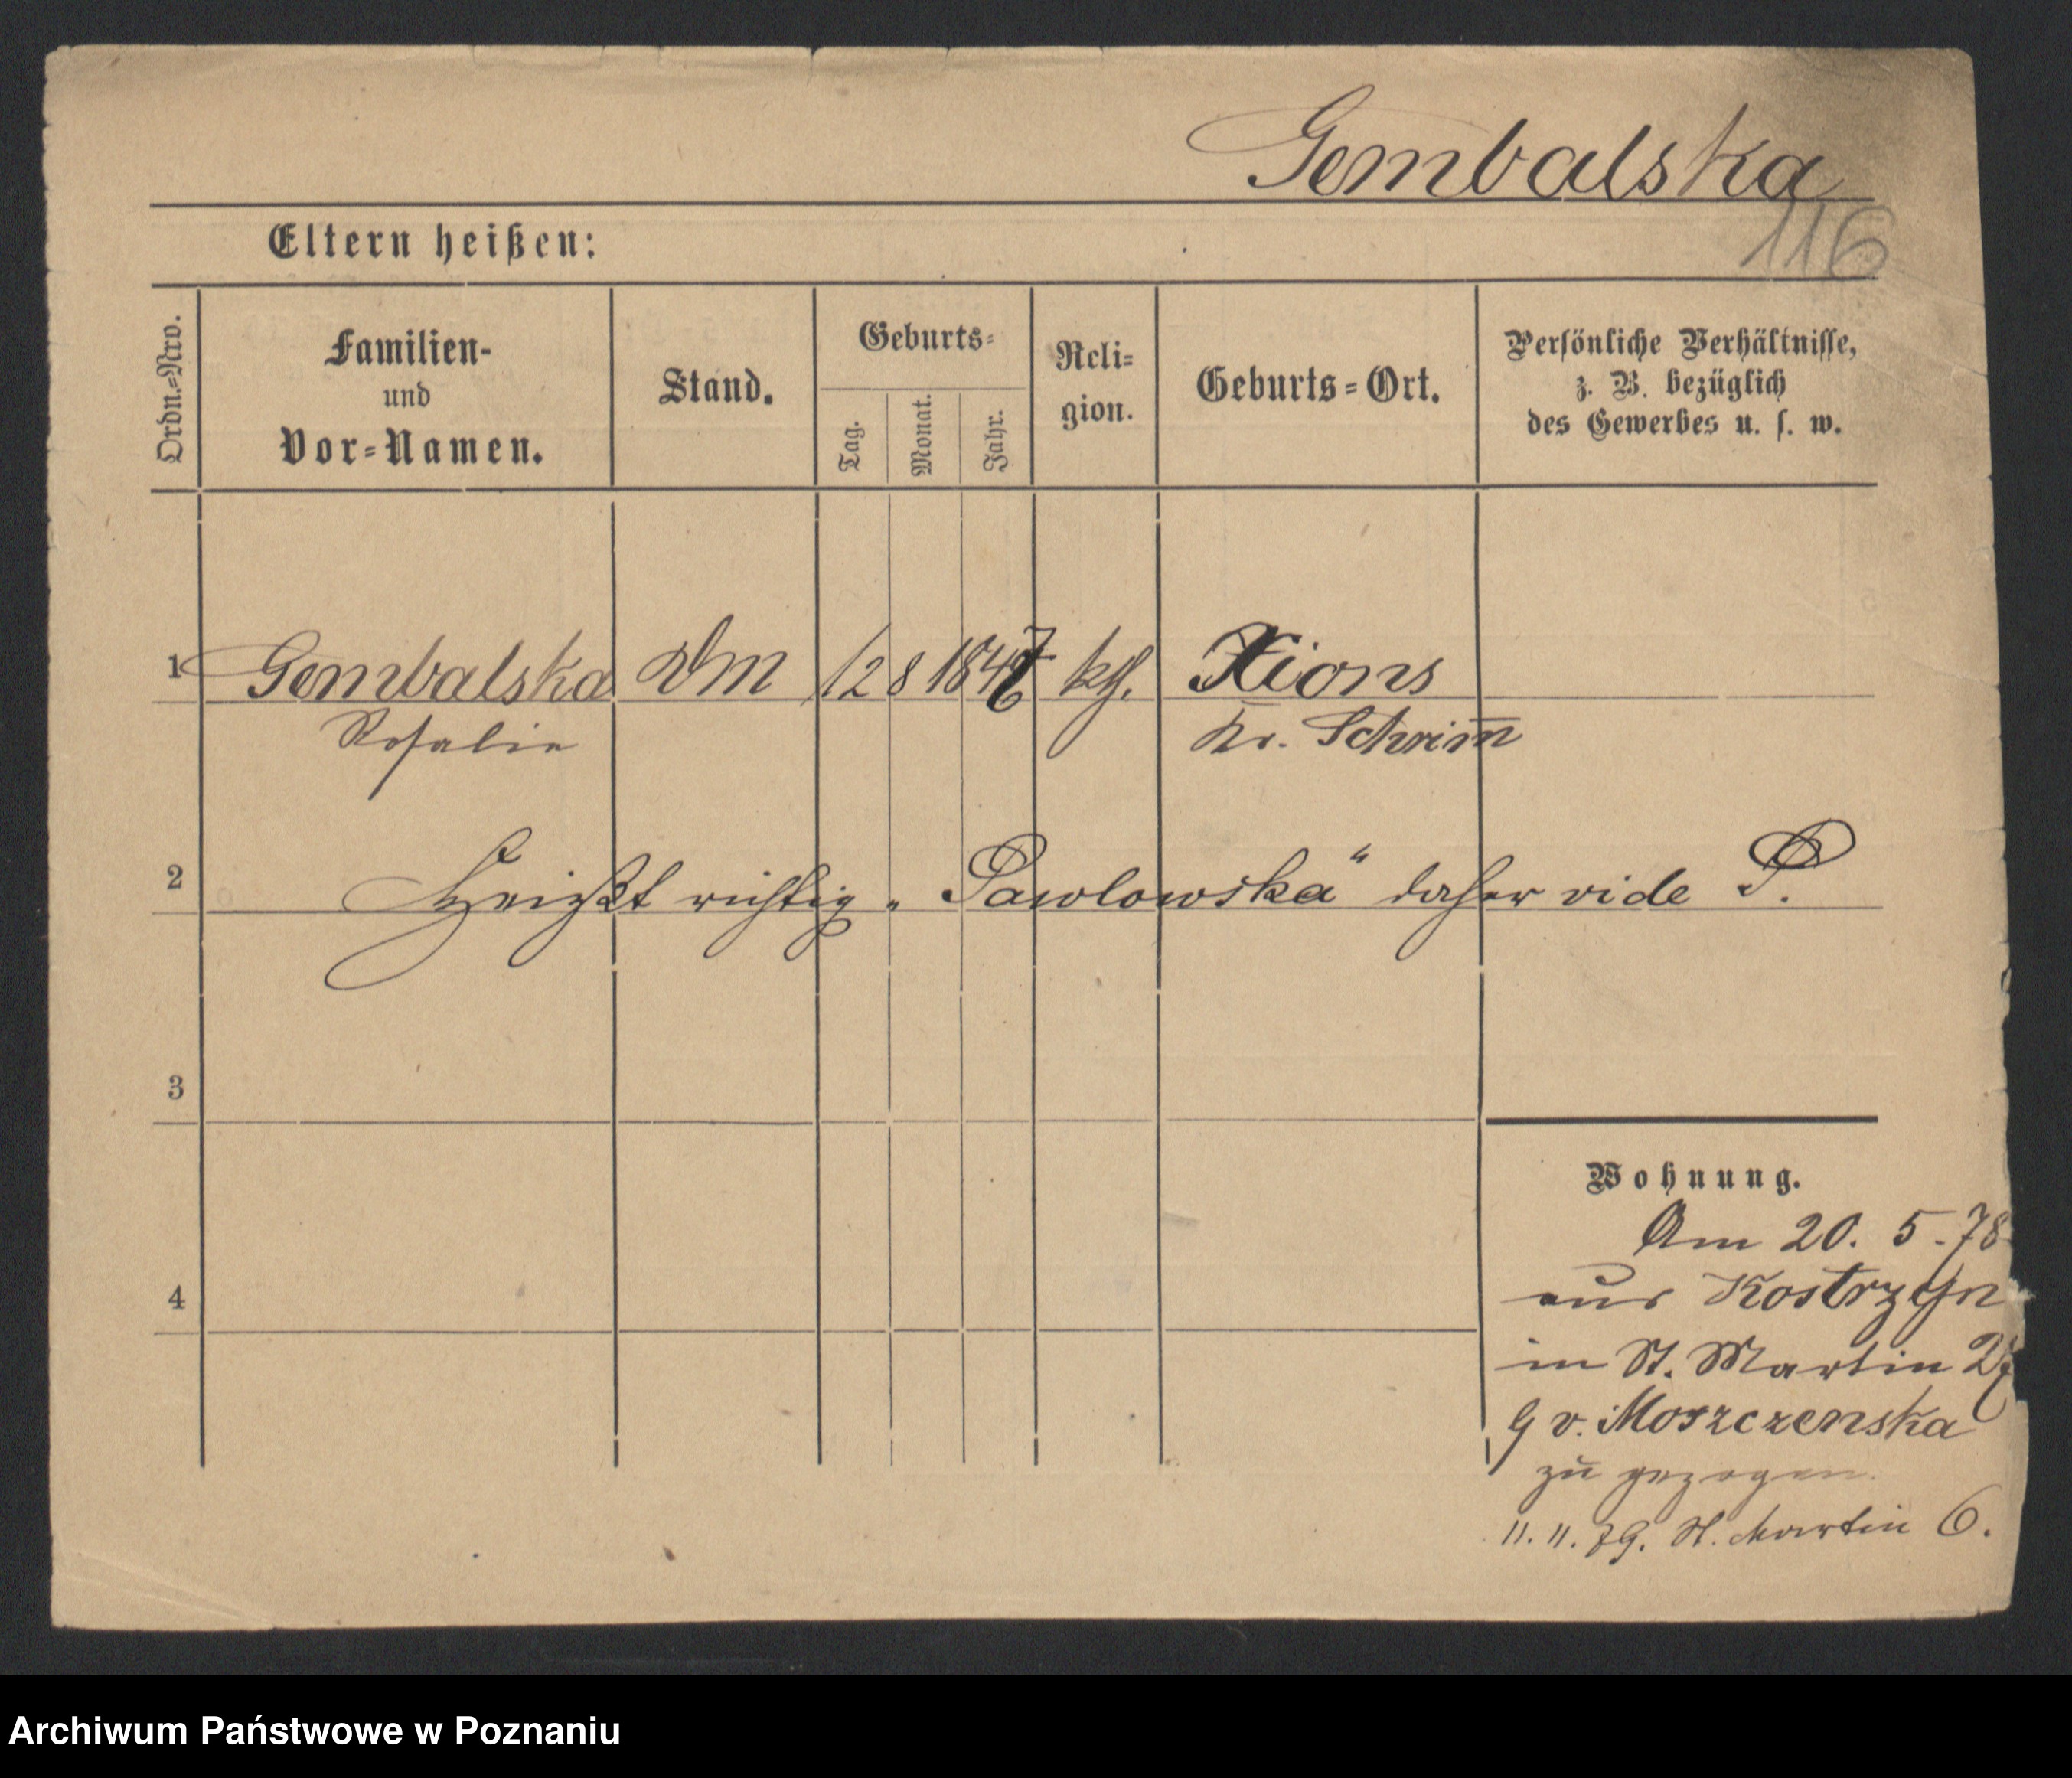 Gembalska
116
Eltern heißen:
Ordn.-Nro.
Familien-
und
Vor-Namen.
Stand.
Geburts-
Tag.
Monat.
Jahr.
Reli-
gion.
Geburts-Ort.
Persönliche Verhältnisse,
z. B. bezüglich
des Gewerbes u. s. w.
1 Gembalska 12 8 kth. Xions
Rosalie Kr. Schrim̅
2 Heißt richtig „Pawlowska“ daher vide P.
3
4
Wohnung.
Am 20. 5. 78
aus Kostrzyn
in St. Martin
v. Moszczenska
zu gezogen.
11. 11. 79. St. Martin 6.
Archiwum Państwowe w Poznaniu